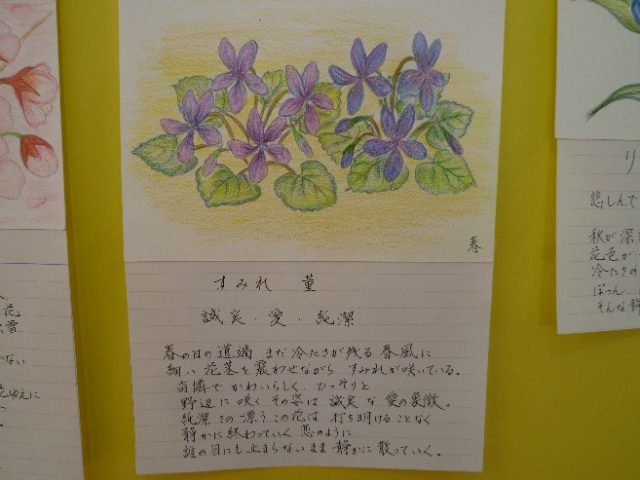 春
すみれ 菫
誠実・愛・純潔
春の日の道端 まだ冷たさが残る春風に
細い花茎を震わせながら すみれが咲いている。
可憐で かわいらしく ひっそりと
野辺に咲くその姿は 誠実な愛の象徴。
純潔さの漂うこの花は 打ち明けることなく
静かに終わっていく恋のように
誰の目にも止まらないまま 静かに散っていく。
花
ない
ゆえに
り
悲しんで
秋が深
花色が
冷たさの
ぽつん
そんな